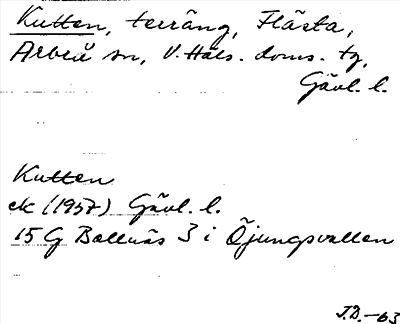 Kutten, terräng, Flästa,
Arbrå sn, V. Häls. doms. tg,
Gävl. l.
Kutten
ek (1957) Gävl. l.
15 G Bollnäs 3 i Öjungsvallen
J.D.-63